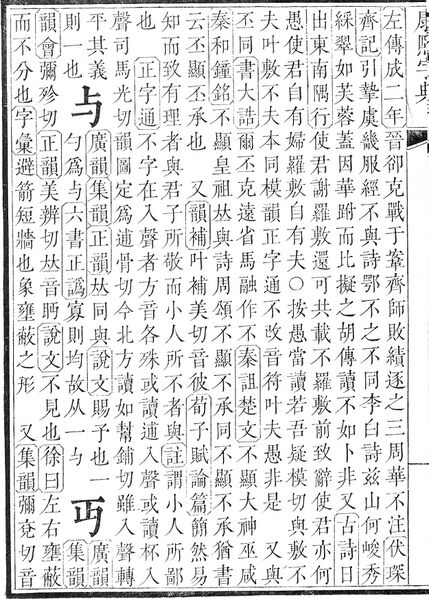 康熙字典
左傳成二年晉卻克戰于鞌齊師敗績逐之三周華不注伏琛
齊記引摯虞畿服經不與詩鄂不之不同李白詩兹山何峻秀
綵翠如芙蓉蓋因華跗而比擬之胡傳讀不如卜非 又古詩日
出東南隅行使君謝羅敷還可共載不羅敷前致辭使君亦何
愚使君自有婦羅敷自有夫○按愚當讀若吾疑模切與敷不
夫叶敷不夫本同模韻正字通不改音符夫愚非是 又與
丕同書大誥爾丕克遠省馬融作不秦詛楚文不顯大神巫咸
秦和鐘銘不顯皇祖𠀤與詩周頌不顯不承同不顯不承猶書
云丕顯丕承也 又韻補叶補美切音彼荀子賦論篇簡然易
知而致有理者與君子所敬而小人所不者與註謂小人所鄙
也 正字通不字在入聲者方音各殊或讀逋入聲或讀杯入
聲司馬光切韻圖定爲逋骨切今北方讀如幫鋪切雖入聲轉
平其義則一也
与 廣韻集韻正韻𠀤同與說文賜予也一
勺爲与六書正譌寡則均故从一与
丏 廣韻集韻
韻會彌殄切正韻美辨切𠀤音眄說文不見也徐曰左右壅蔽
而不分也字彙避箭短牆也象壅蔽之形 又集韻彌兗切音